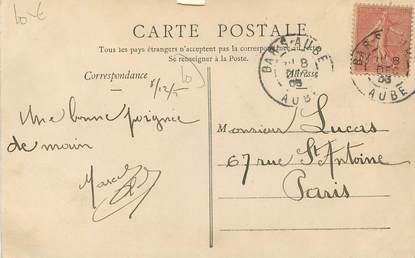 CARTE POSTALE
Tous les pays étrangers n'acceptent pas la correspondance au recto.
Se renseigner à la Poste.
Correspondance
Adresse
BAR-S-AUBE
AUBE
BAR-S-AUBE
AUBE
8/12/5
Une bonne poignée
de main
Marcel
Monsieur Lucas
67 rue St Antoine
Paris